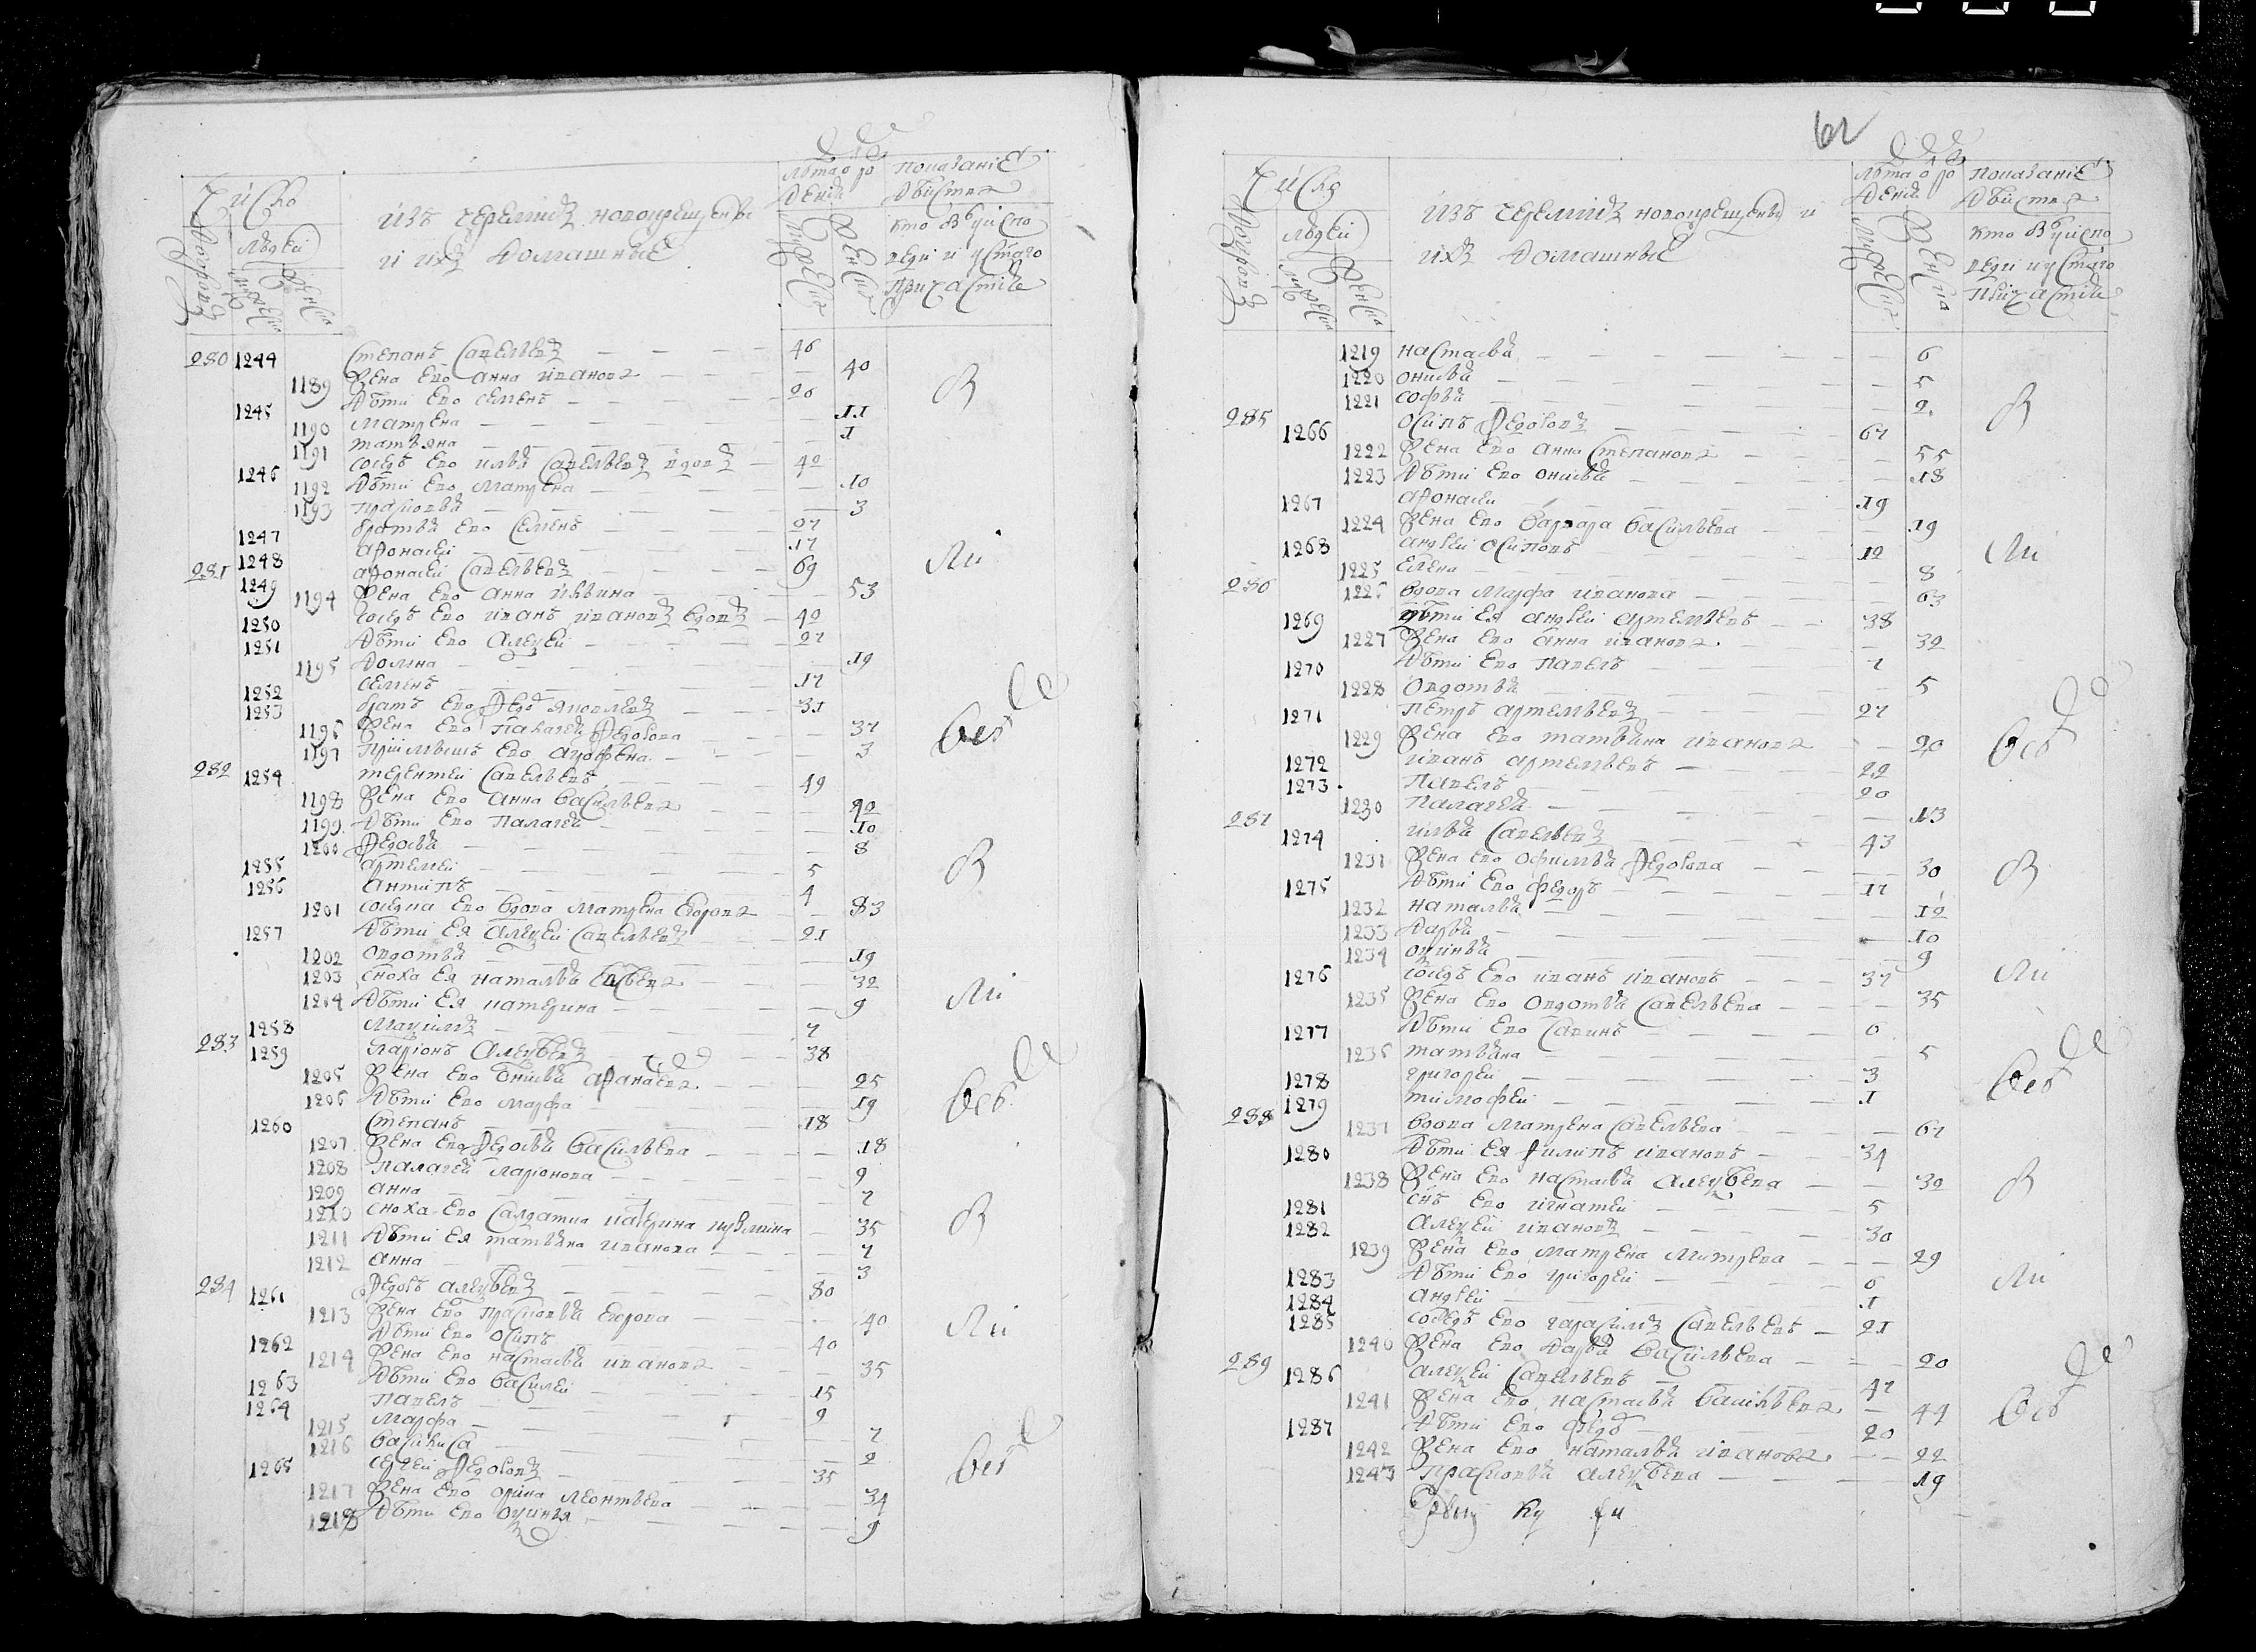 Число
людей
дворовъ
мужеска
женска
изъ черемисъ новокрещены
и ихъ домашные
лѣта о ро
дении
мужеска
женска
показание
дѣйства
кто былъ у испо
веди и у стаго
причастия
280 1244 Степанъ Савельевъ 46
1189 жена ево анна иванова 40
1245 дѣти ево семенъ 20
1190 матрена 11
1191 татьяна 1
1246 соседъ ево илья Савельевъ вдовъ 42
1192 дѣти ево матрена 10
1193 прасковья 3
1247 братья ево семенъ 27
1248 афонасеи 17
281 1249 афонасеи Савельевъ 69
1194 жена ево анна ильина 53
1250 соседъ ево иванъ ивановъ вдовъ 42
1251 дѣти ево алексеи 27
1195 домна 19
1252 семенъ 17
1253 братъ ево федоръ яковлевъ 31
1196 жена ево палагея федорова 37
1197 приимышъ ево агрофена 3
282 1254 терентеи Савельевъ 49
1198 жена ево анна васильева 42
1199 дѣти ево палагея 10
1200 федосья 8
1255 артемеи 5
1256 антипъ 4
1201 соседка ево вдова матрена егорова 83
1257 дѣти ея алексеи Савельевъ 21
1202 овдотья 19
1203 сноха ея наталья 32
1204 дѣти ея катерина 9
1258 максимъ 7
283 1259 ларионъ алексѣевъ 38
1205 жена ево онисья афанасева 25
1206 дѣти ево марфа 19
1260 степанъ 18
1207 жена ево федосья васильева 18
1208 палагея ларионова 9
1209 анна 7
1210 сноха ево салдатка катерина кузмина 35
1211 дѣти ея татьяна иванова 7
1212 анна 3
284 1261 федоръ алексѣевъ 80
1213 жена ево прасковья егорова 40
1262 дѣти ево осипъ 40
1214 жена ево настасья иванова 35
1263 дѣти ево василеи 15
1264 павелъ 9
1215 марфа 7
1216 василиса 2
1265 сергеи федоровъ 35
1217 жена ево орина леонтьева 34
1218 дѣти ево 9
62
Число
людей
дворовъ
мужеска
женска
изъ черемисъ новокрещены и
ихъ домашные
лѣта о ро
дении
мужеска
женска
показание
дѣйства
кто былъ у испо
веди и у стаго
причастия
1219 настасья 6
1220 онисья 5
1221 софья 2
285 1266 осипъ федоровъ 67
1222 жена ево анна степанова 55
1223 дѣти ево онисья 18
1267 афонасеи 19
1224 жена ево варвара васильева 19
1268 андреи осиповъ 12
1225 елена 8
286 1226 вдова марфа иванова 63
1269 дѣти ея андреи артемьевъ 38
1227 жена ево анна иванова 32
1270 дѣти ево павелъ 7
1228 овдотья 5
1271 петръ артемьевъ 27
1229 жена ево татьяна иванова 20
1272 иванъ артемьевъ 22
1273 павелъ 20
1230 палагея 13
287 1274 илья Савельевъ 43
1231 жена ево офимья федорова 30
1275 дѣти ево федоръ 17
1232 наталья 12
1233 дарья 10
1234 9
1276 соседъ ево иванъ ивановъ 37
1235 жена ево овдотья Савельева 35
1277 дѣти ево савинъ 6
1236 татьяна 5
1278 григореи 3
1279 тимофеи 1
288 1237 вдова матрена Савельева 67
1280 дѣти ея филипъ ивановъ 34
1238 жена ево настасья алексѣева 32
1281 снъ ево игнатеи 5
1282 алексеи ивановъ 30
1239 жена ево матрена митрева 29
1283 дѣти ево григореи 6
1284 андреи 1
1285 соседъ ево гарасимъ Савельевъ 21
1240 жена ево дарья васильева 20
289 1286 алексеи Савельевъ 47
1241 жена ево настасья васильева 44
1287 дѣти ево федоръ 20
1242 жена ево наталья иванова 22
1243 прасковья алексѣева 19